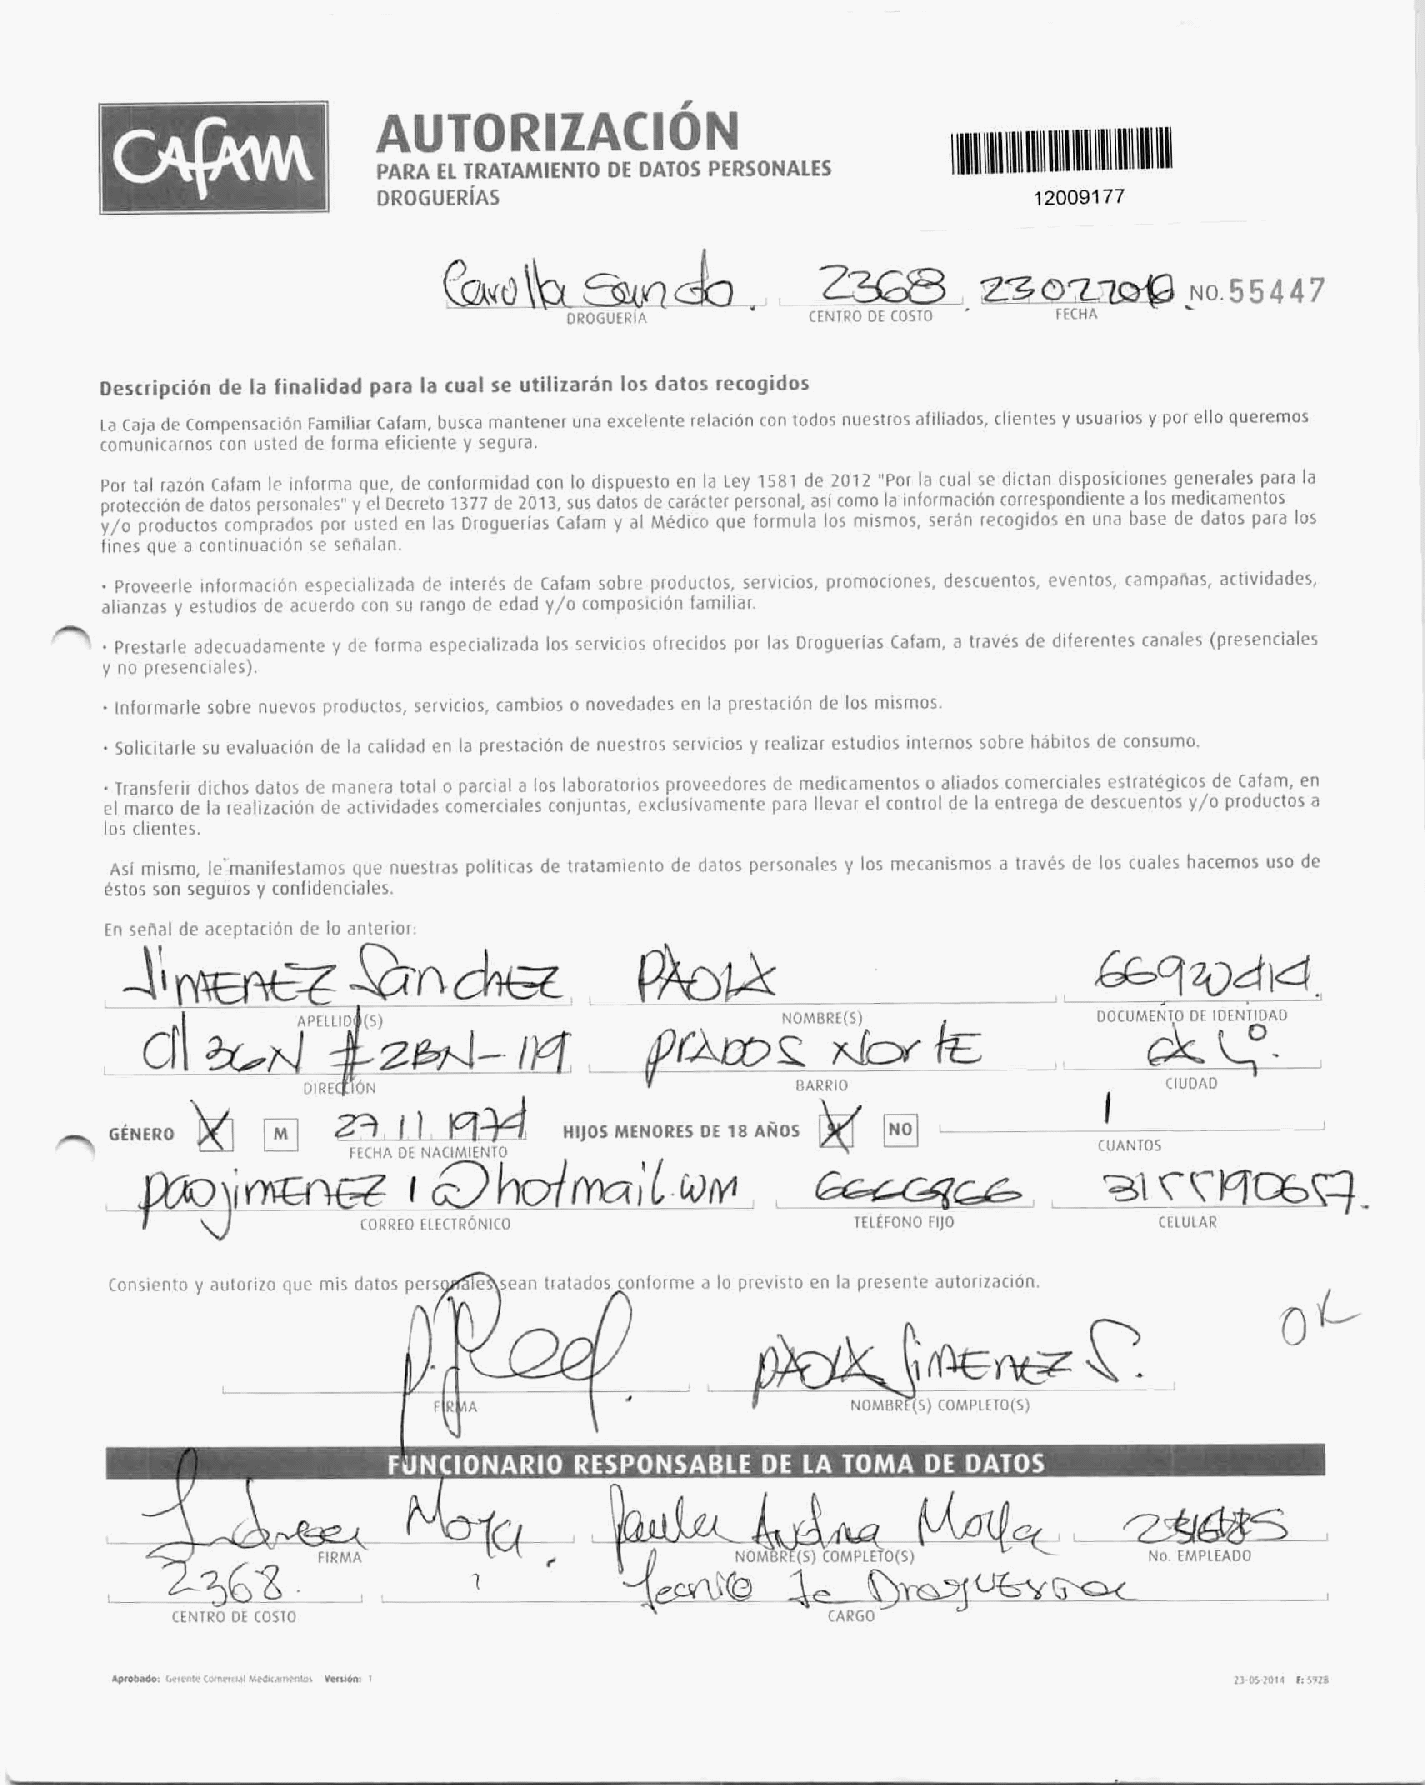 CAFAM
AUTORIZACIÓN
PARA EL TRATAMIENTO DE DATOS PERSONALES
DROGUERÍAS
12009177
2368 NO.55447
DROGUERÍA CENTRO DE COSTO FECHA
Descripción de la finalidad para la cual se utilizarán los datos recogidos
La Caja de Compensación Familiar Cafam, busca mantener una excelente relación con todos nuestros afiliados, clientes y usuarios y por ello queremos
comunicarnos con usted de forma eficiente y segura.
Por tal razón Cafam le informa que, de conformidad con lo dispuesto en la Ley 1581 de 2012 "Por la cual se dictan disposiciones generales para la
protección de datos personales" y el Decreto 1377 de 2013, sus datos de carácter personal, así como la información correspondiente a los medicamentos
y/o productos comprados por usted en las Droguerías Cafam y al Médico que formula los mismos, serán recogidos en una base de datos para los
fines que a continuación se señalan.
· Proveerle información especializada de interés de Cafam sobre productos, servicios, promociones, descuentos, eventos, campañas, actividades,
alianzas y estudios de acuerdo con su rango de edad y/o composición familiar.
· Prestarle adecuadamente y de forma especializada los servicios ofrecidos por las Droguerías Cafam, a través de diferentes canales (presenciales
y no presenciales).
· Informarle sobre nuevos productos, servicios, cambios o novedades en la prestación de los mismos.
· Solicitarle su evaluación de la calidad en la prestación de nuestros servicios y realizar estudios internos sobre hábitos de consumo.
· Transferir dichos datos de manera total o parcial a los laboratorios proveedores de medicamentos o aliados comerciales estratégicos de Cafam, en
el marco de la realización de actividades comerciales conjuntas, exclusivamente para llevar el control de la entrega de descuentos y/o productos a
los clientes.
Así mismo, le manifestamos que nuestras políticas de tratamiento de datos personales y los mecanismos a través de los cuales hacemos uso de
éstos son seguros y confidenciales.
En señal de aceptación de lo anterior:
JIMENEZ Sanchez PAOLA
APELLIDO(S) NOMBRE(S) DOCUMENTO DE IDENTIDAD
Cll 36N # 2BN-119 PRADOS NORTE
DIRECCIÓN BARRIO CIUDAD
GÉNERO X M 27 11 1974 HIJOS MENORES DE 18 AÑOS X NO 1
FECHA DE NACIMIENTO CUANTOS
paojimENEZ1@hotmail.com 6666866 3155190657.
CORREO ELECTRÓNICO TELÉFONO FIJO CELULAR
Consiento y autorizo que mis datos personales sean tratados conforme a lo previsto en la presente autorización.
OK
PAOLA JIMENEZ S.
FIRMA NOMBRE(S) COMPLETO(S)
FUNCIONARIO RESPONSABLE DE LA TOMA DE DATOS
Andrea Moya Paula Andrea Moya
FIRMA NOMBRE(S) COMPLETO(S) No. EMPLEADO
2368. Tecnico de Drogueria
CENTRO DE COSTO CARGO
Aprobado: Gerente Comercial Medicamentos Versión: 1 23-05-2014 F: 5928